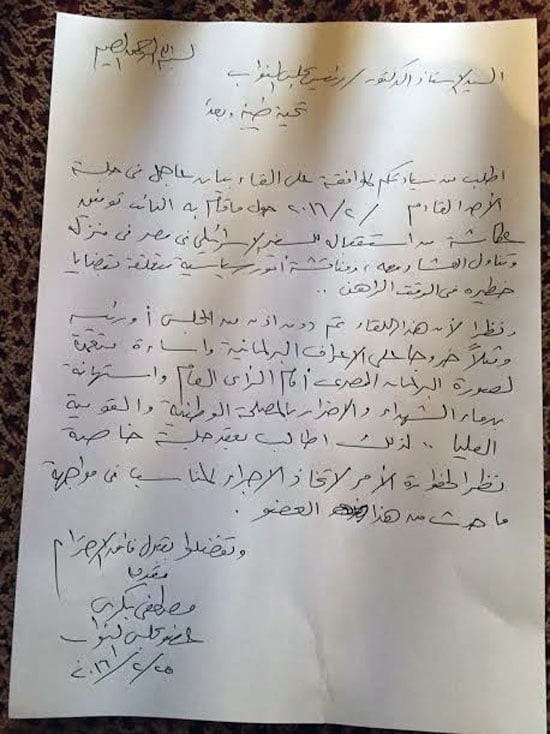 بسم الله الرحمن الرحيم
السيد الاستاذ الدكتور / رئيس مجلس النواب
تحية طيبة وبعد
اطلب من سيادتكم الموافقة على القاء بيان عاجل فى جلسة
الأحد القادم / ٢ / ٢٠١٦ حول ماقام به النائب توفيق
عكاشة من استقباله للسفير الاسرائيلى فى مصر فى منزله
وتناول العشاء معه ، ومناقشة أمور سياسية متعلقة بقضايا
خطيره فى الوقت الراهن ..
ونظرا لأن هذا اللقاء تم دون اذن من المجلس أو رئيسه
ومثل خروجا على الاعراف البرلمانية واساءة متعمدة
لصورة البرلمان المصرى أمام الرأى العام واستهانة
بدماء الشهداء والاضرار بالمصلحة الوطنية والقومية
العليا .. لذلك اطالب بعقد جلسة خاصة
نظرا لخطورة الأمر لاتخاذ الاجراء المناسب فى مواجهة
ما حدث من هذا العضو .
وتفضلوا بقبول فائق الاحترام
مقدمه
مصطفى بكرى
عضو مجلس النواب
٢٥ / ٢ / ٢٠١٦